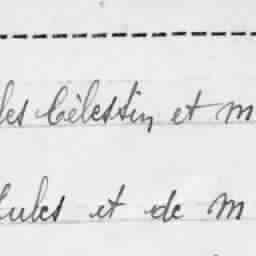 les Célestin et m
ules et de m